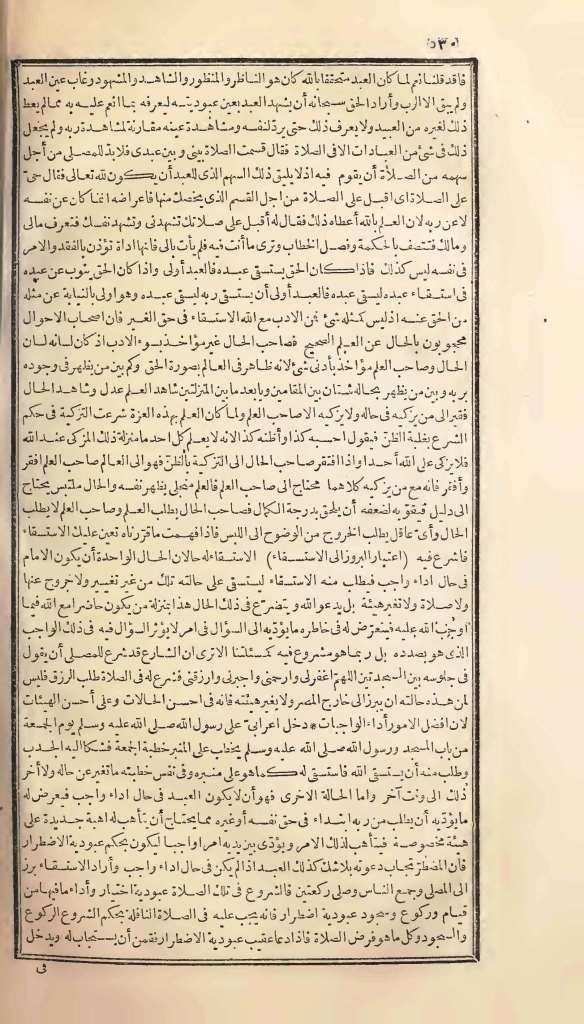 ٥٣٠
فاقد قلنا نعم لما كان العبد متحققا بالله كان هو الناظر والمنظور والشاهد والمشهود وغاب عين العبد
ولم يبق الا الرب وأراد الحق سبحانه أن يشهد العبد بعين عبوديته ليعرفه بما انعم عليه به مما لم يعط
ذلك لغيره من العبيد ولا يعرف ذلك حتى يرد لنفسه ومشاهدة عينه مقارنة لمشاهدة ربه ولم يجعل
ذلك فى شئ من العبادات الا فى الصلاة فقال قسمت الصلاة بينى وبين عبدى فلا بد للمصلى من أجل
سهمه من الصلاة أن يقوم فيه اذ لا يليق ذلك السهم الذى للعبد أن يكون لله تعالى فقال حى
على الصلاة اى اقبل على الصلاة من اجل القسم الذى يخصك منها فاعراضه انما كان عن نفسه
لا عن ربه لان العلم بالله أعطاه ذلك فقال له أقبل على صلاتك تشهدنى وتشهد نفسك فتعرف مالى
ومالك فتتصف بالحكمة وفصل الخطاب وترى ما أنت فيه فلم يأت بالى فانها اداة تؤذن بالفقد والامر
فى نفسه ليس كذلك فاذا كان الحق يستسقى عبده فالعبد أولى واذا كان الحق ينوب عن عبده
فى استسقاء عبده ليسقى عبده فالعبد أولى أن يستسقى ربه ليسقى عبده وهو اولى بالنيابة عن مثله
من الحق عنه اذ ليس كمثله شئ فمن الادب مع الله الاستسقاء فى حق الغير فان اصحاب الاحوال
محجوبون بالحال عن العلم الصحيح فصاحب الحال غير مؤاخذ بسوء الادب اذ كان لسانه لسان
الحال وصاحب العلم مؤاخذ بأدنى شئ لانه ظاهر فى العالم بصورة الحق وكم بين من يظهر فى وجوده
بربه وبين من يظهر بحاله شتان بين المقامين ويا بعد ما بين المنزلتين شاهد العلم عدل وشاهد الحال
فقير الى من يزكيه فى حاله ولا يزكيه الا صاحب العلم ولما كان العلم بهذه العزة شرعت التزكية فى حكم
الشرع بغلبة الظن فيقول احسبه كذا وأظنه كذا لانه لا يعلم كل احد ما منزلة ذلك المزكى عند الله
فلا يزكى على الله أحدا واذا افتقر صاحب الحال الى التزكية بالظن فهو الى العالم صاحب العلم افقر
وأفقر فانه مع من يزكيه كلاهما محتاج الى صاحب العلم فالعلم متجلى يظهر نفسه والحال ملتبس يحتاج
الى دليل يقويه لضعفه أن يلحق بدرجة الكمال فصاحب الحال يطلب العلم وصاحب العلم لا يطلب
الحال وأى عاقل يطلب الخروج من الوضوح الى اللبس فاذا فهمت ما قررناه تعين عليك الاستسقاء
فاشرع فيه (اعتبار البروز الى الاستسقاء) الاستسقاء له حالان الحال الواحدة أن يكون الامام
فى حال اداء واجب فيطلب منه الاستسقاء ليستسقى على حالته تلك من غير تغيير ولا خروج عنها
ولا صلاة ولا تغير هيئة بل يدعو الله ويتضرع فى ذلك الحال هذا بمنزلة من يكون حاضرا مع الله فيما
اوجب الله عليه فيتعرض له فى خاطره ما يؤديه الى السؤال فى امر لا يؤثر السؤال فيه فى ذلك الواجب
الذى هو بصدده بل ربما هو مشروع فيه كمسئلتنا الا ترى ان الشارع قد شرع للمصلى أن يقول
فى جلوسه بين السجدتين اللهم اغفر لى وارحمنى واجبرنى وارزقنى فشرع له فى الصلاة طلب الرزق فليس
لمن هذه حالته ان يبرز الى خارج المصر ولا يغير هيئته فانه فى احسن الحالات وعلى أحسن الهيئات
لان افضل الامور أداء الواجبات * دخل اعرابى على رسول الله صلى الله عليه وسلم يوم الجمعة
من باب المسجد ورسول الله صلى الله عليه وسلم يخطب على المنبر خطبة الجمعة فشكا اليه الجدب
وطلب منه أن يستسقى الله فاستسقى له كما هو على منبره وفى نفس خطبته ما تغير عن حاله ولا أخر
ذلك الى وقت آخر واما الحالة الاخرى فهو أن لا يكون العبد فى حال اداء واجب فيعرض له
ما يؤديه أن يطلب من ربه ابتداء فى حق نفسه أو غيره مما يحتاج أن يتأهب له اهبة جديدة على
هيئة مخصوصة فيتأهب لذلك الامر ويؤدى بين يديه امرا واجبا ليكون بحكم عبودية الاضطرار
فان المضطر تجاب دعوته بلا شك كذلك العبد اذا لم يكن فى حال اداء واجب وأراد الاستسقاء برز
الى المصلى وجمع الناس وصلى ركعتين فالشروع فى تلك الصلاة عبودية اختيار وأداء ما فيها من
قيام وركوع وسجود عبودية اضطرار فانه يجب عليه فى الصلاة النافلة بحكم الشروع الركوع
والسجود وكل ما هو فرض الصلاة فاذا دعا عقيب عبودية الاضطرار فقمن أن يستجاب له ويدخل
فى